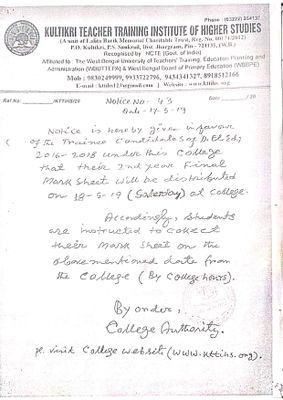 Phone : (03222) 254137
KULTIKRI TEACHER TRAINING INSTITUTE OF HIGHER STUDIES
(A unit of Lalita Bank Memorial Charitable Trust, Reg. No. 00171/2012)
P.O. Kultikri, P.S. Sankrail, Dist. Jhargram, Pin - 721135, (W.B.)
Recognised by NCTE (Govt. of India)
Affiliated to The West Bengal University of Teachers' Training, Education Planning and
Administration (WBUTTEPA) & West Bengal Board of Primary Education (WBBPE)
Mob : 9830249999, 9933722796, 9454341327, 8918512166
E-mail : kttihs12@gmail.com | Website : www.kttihs.org
Ref No: /KTTIHS/20 Date / 20
Notice No- 43
Date- 17-5-19
Notice is hereby given in favour
of the Trainee Candidates of D.El.Ed,
2016-2018 under this College
that their 2nd year Final
Mark Sheet will be distributed
on 18-5-19 (Saterday) at College.
Accordingly, students
are instructed to collect
their Mark Sheet on the
above mentioned date from
the College (By College hours).
By order,
College Authority.
pl. visit College website (www.kttihs.org).